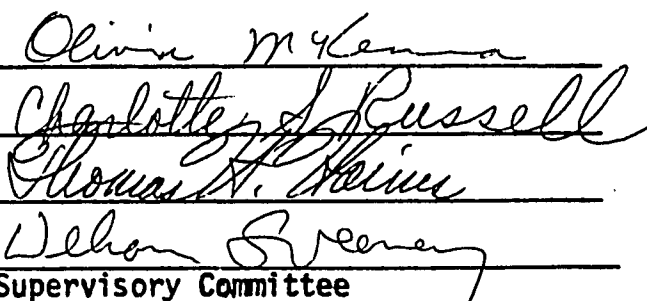 Olivia McKenna
Charlotte S. Russell
Thomas H. Haines
William Sweeney
Supervisory Committee